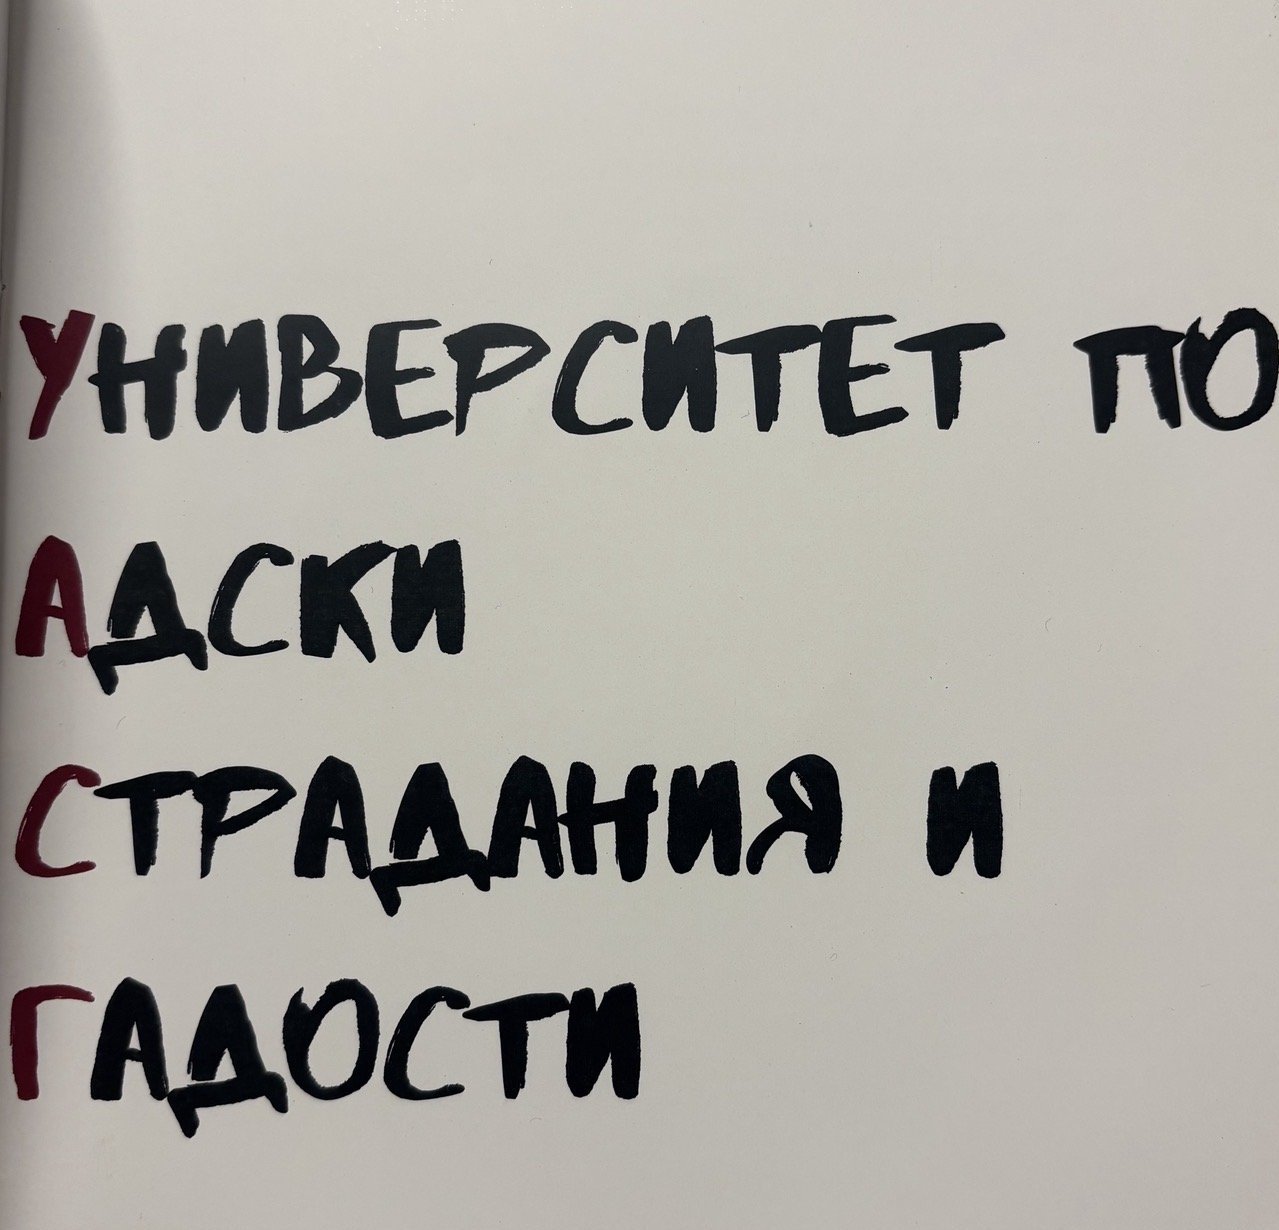 УНИВЕРСИТЕТ ПО
АДСКИ
СТРАДАНИЯ И
ГАДОСТИ